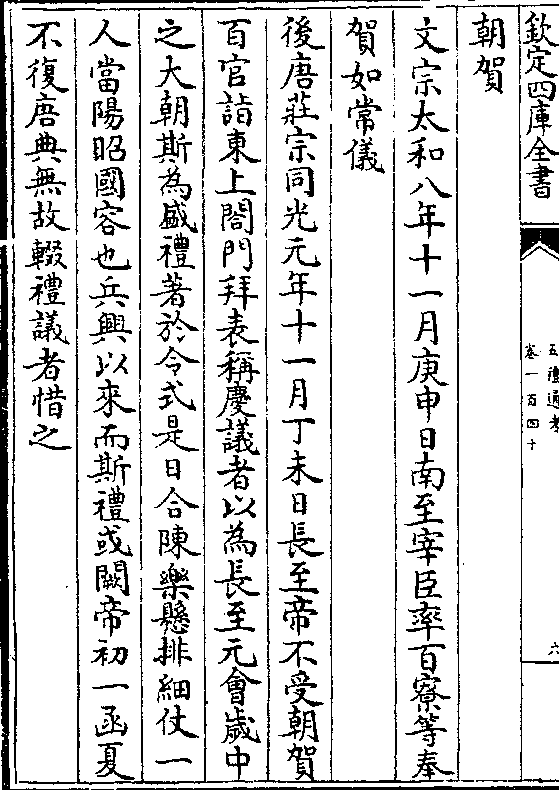 欽定四庫全書
五禮通考
卷一百四十
六
朝賀
文宗太和八年十一月庚申日南至宰臣率百寮等奉
賀如常儀
後唐莊宗同光元年十一月丁未日長至帝不受朝賀
百官詣東上閤門拜表稱慶議者以為長至元會歲中
之大朝斯為盛禮著於令式是日合陳樂懸排細仗一
人當陽昭國容也兵興以來而斯禮或闕帝初一函夏
不復唐典無故輟禮議者惜之